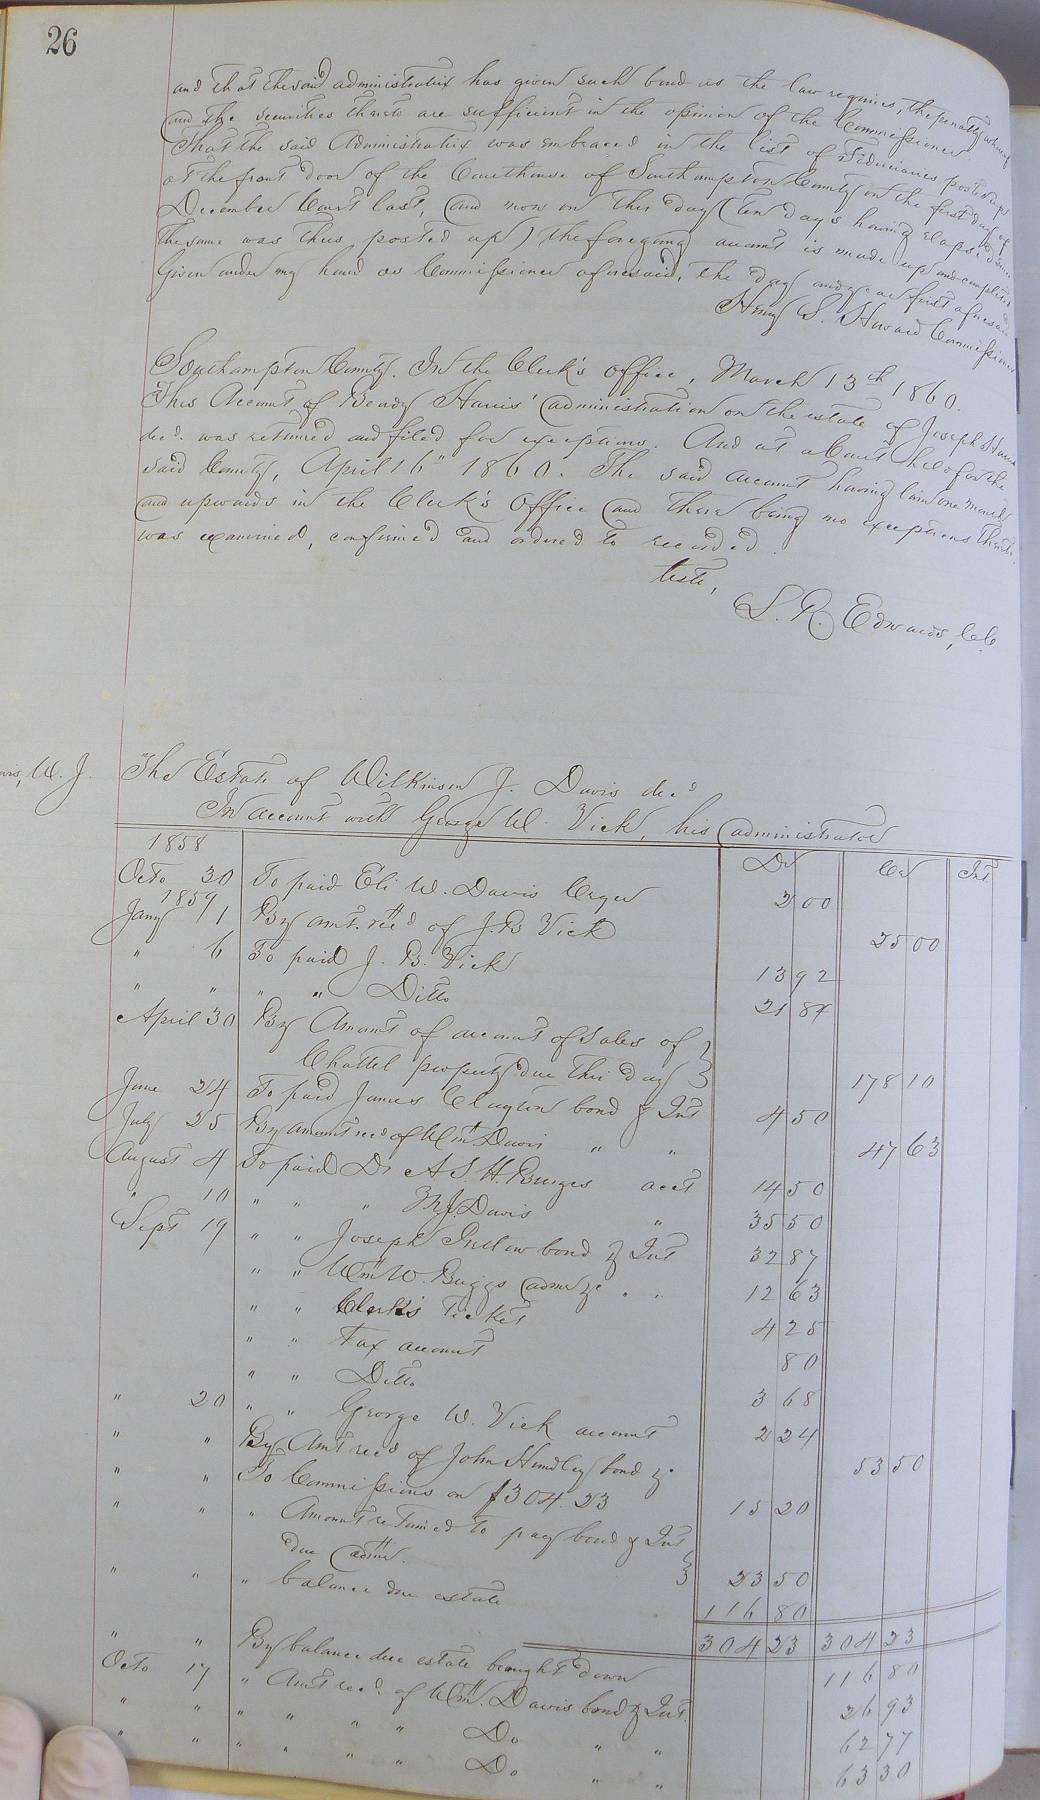 26
and that the said administratrix has given such bond as the law requires, the penalty whereof
and the securities thereto are sufficient in the opinion of the Commissioner
That the said Administratrix was embraced in the list of Fiduciaries posted up
at the front door of the Courthouse of Southampton County on the first day of
December Court last, and now on this day (ten days having elapsed since
the same was thus posted up) the foregoing account is made up and completed
Given under my hand as Commissioner aforesaid, the day and year first aforesaid
Henry S. Commissioner
Southampton County. In the Clerk's office, March 13th 1860.
This Account of Harris' administration on the estate of Joseph Harris
decd. was returned and filed for exceptions. And at a Court held for the
said County, April 16th 1860. The said account having lain one month
and upwards in the Clerk's Office and there being no exceptions thereto
was examined, confirmed and ordered to recorded.
Teste,
L. R. Edwards, C.C.
W. J.
The Estate of Wilkinson J. Davis decd
In account with George W. Vick, his administrator
1858 Dr Cr Int
Octo 30 To paid Eli W. Davis 2 00
1859
Jany 1 By amt. recd of J. B. Vick 25 00
" 6 To paid J. B. Vick 13 92
" " " " Ditto 21 84
April 30 By Amount of account of Sales of
Chattel property due this day 178 10
June 24 To paid James Clayton bond & Int 4 50
July 25 By amount recd of Wm Davis " " 47 63
August 4 To paid Dr A. S. H. Burges acct 14 50
" 10 " " " Davis " 35 50
Sept 19 " " Joseph bond & Int 32 87
" " Wm W. Buggs admr &c " " 12 63
" " Clerk's Ticket 4 25
" " Tax account 80
" " Ditto 3 68
" 20 " " George W. Vick account 2 24
" " By Amt recd of John Hundley bond &c 53 50
" " To Commissions on $304.23 15 20
" " " Amount retained to pay bond & Int
due admr. 23 50
" " " balance due estate 116 80
304 23 304 23
" " By balance due estate brought down 116 80
Octo 17 " Amt recd. of Wm. Davis bond & Int. 26 93
" " " " " " Do " " 62 77
" " " " " " Do " " 63 30